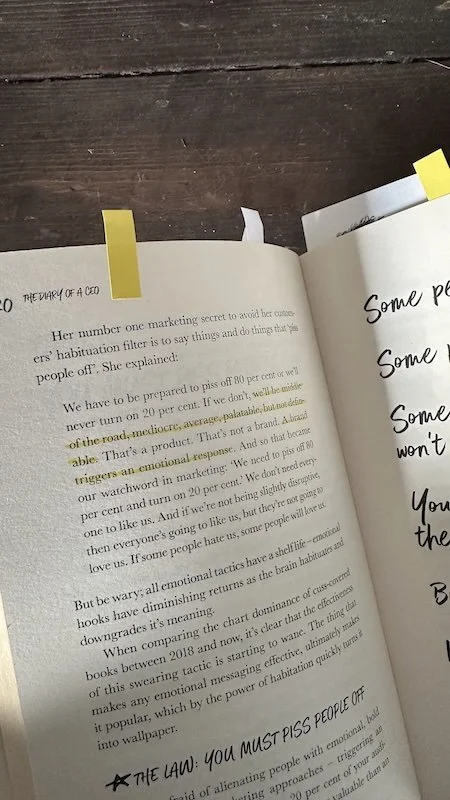 THE DIARY OF A CEO
Her number one marketing secret to avoid her custom-
ers' habituation filter is to say things and do things that 'piss
people off'. She explained:
We have to be prepared to piss off 80 per cent or we'll
never turn on 20 per cent. If we don't, we'll be middle-
of the road, mediocre, average, palatable, but not defin-
able. That's a product. That's not a brand. A brand
triggers an emotional response. And so that became
our watchword in marketing: 'We need to piss off 80
per cent and turn on 20 per cent.' We don't need every-
one to like us. And if we're not being slightly disruptive,
then everyone's going to like us, but they're not going to
love us. If some people hate us, some people will love us.
But be wary; all emotional tactics have a shelf life – emotional
hooks have diminishing returns as the brain habituates and
downgrades it's meaning.
When comparing the chart dominance of cuss-covered
books between 2018 and now, it's clear that the effectiveness
of this swearing tactic is starting to wane. The thing that
makes any emotional messaging effective, ultimately makes
it popular, which by the power of habituation quickly turns it
into wallpaper.
THE LAW: YOU MUST PISS PEOPLE OFF
of alienating people with emotional, bold
approaches – triggering an
20 per cent of your audi-
valuable than an
Some
Some
Some
won't
You
the